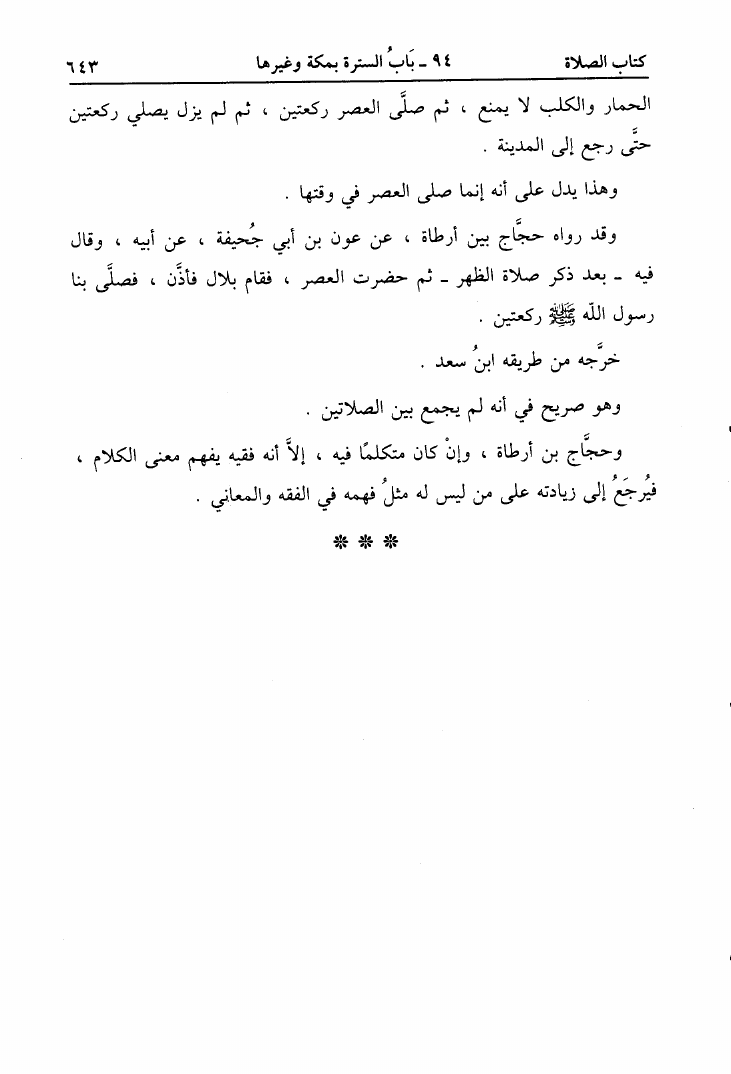 كتاب الصلاة ٩٤ ـ بَابُ السترة بمكة وغيرها ٦٤٣
الحمار والكلب لا يمنع ، ثم صلَّى العصر ركعتين ، ثم لم يزل يصلي ركعتين
حتَّى رجع إلى المدينة .
وهذا يدل على أنه إنما صلى العصر في وقتها .
وقد رواه حجَّاج بين أرطاة ، عن عون بن أبي جُحيفة ، عن أبيه ، وقال
فيه ـ بعد ذكر صلاة الظهر ـ ثم حضرت العصر ، فقام بلال فأذَّن ، فصلَّى بنا
رسول اللَّه ﷺ ركعتين .
خرَّجه من طريقه ابنُ سعد .
وهو صريح في أنه لم يجمع بين الصلاتين .
وحجَّاج بن أرطاة ، وإنْ كان متكلمًا فيه ، إلاَّ أنه فقيه يفهم معنى الكلام ،
فيُرجَعُ إلى زيادته على من ليس له مثلُ فهمه في الفقه والمعاني .
* * *